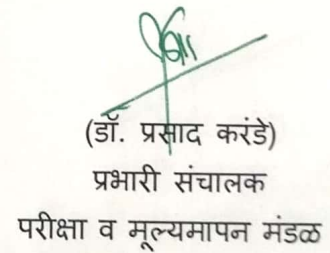 (डॉ. प्रसाद करंडे)
प्रभारी संचालक
परीक्षा व मूल्यमापन मंडळ